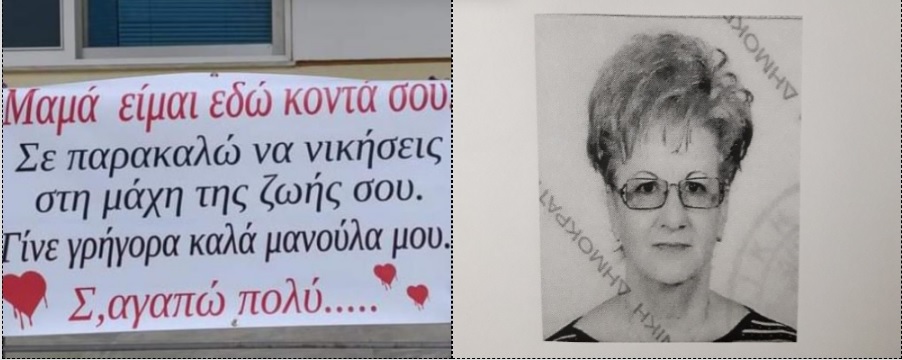 Μαμά είμαι εδώ κοντά σου.
Σε παρακαλώ να νικήσεις
στη μάχη της ζωής σου.
Γίνε γρήγορα καλά μανούλα μου.
Σ,αγαπώ πολύ.....
ΔΗΜΟΚΡΑΤ
ΝΙΚΗ ΔΗΜΟΚΡΑΤ